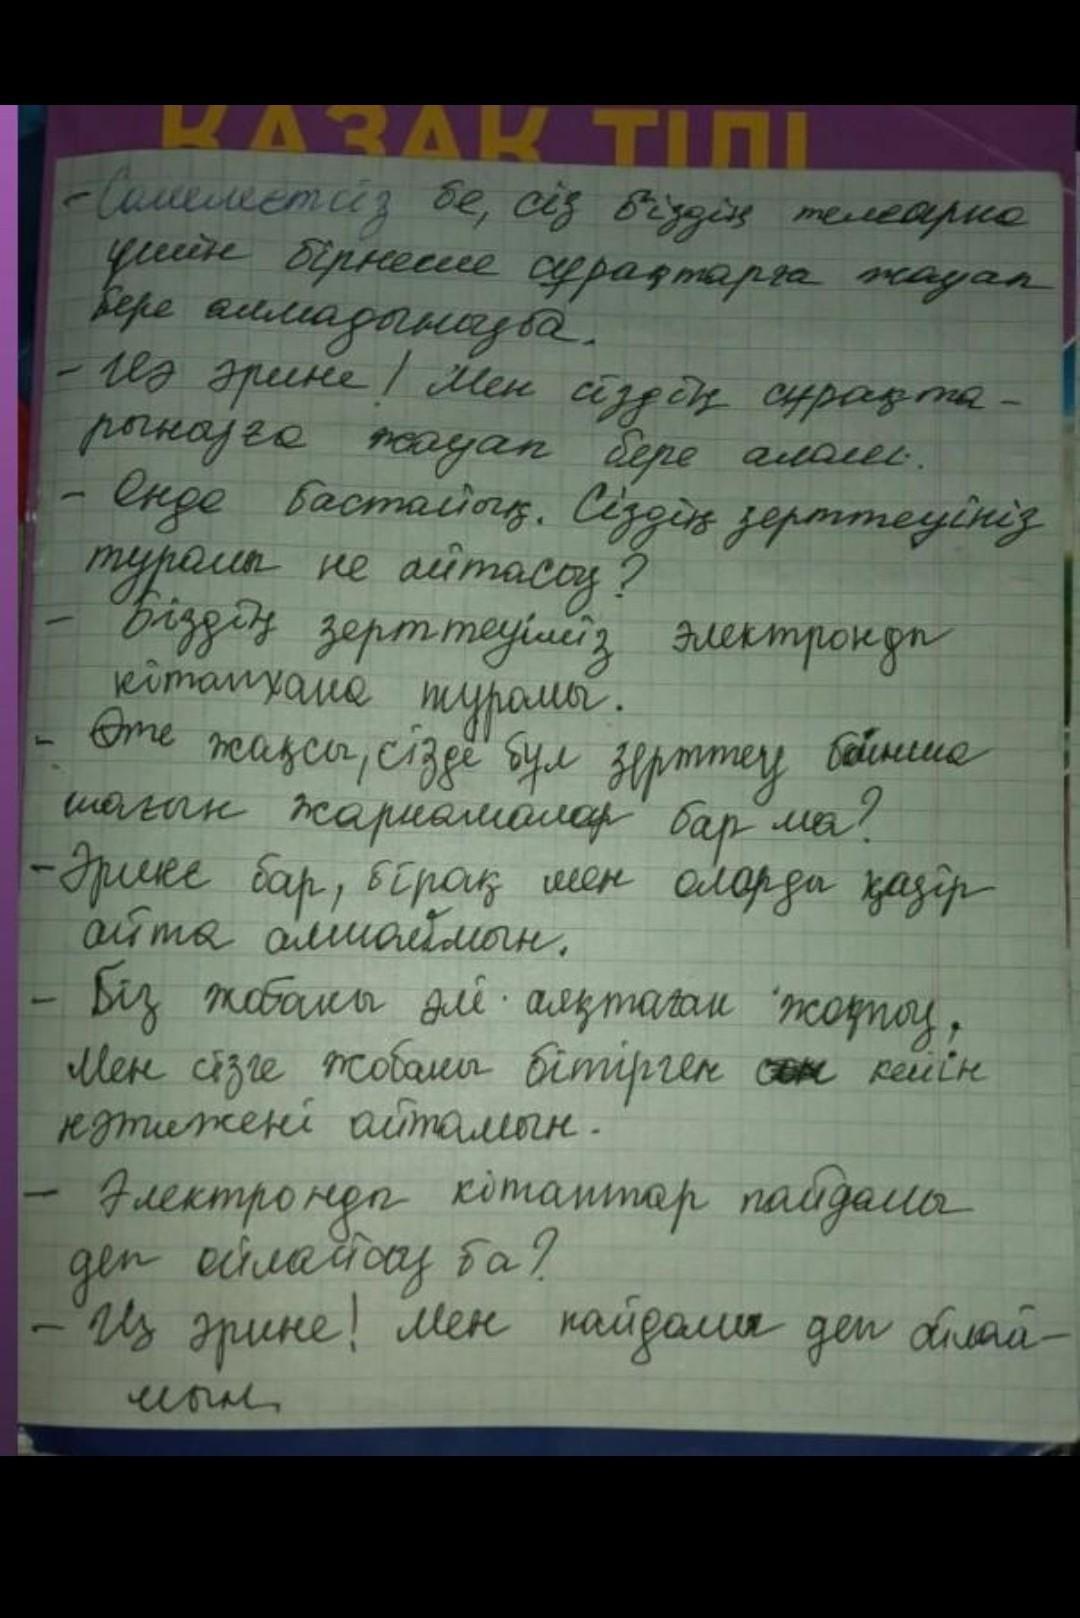 ҚАЗАҚ ТІЛІ
- Сәлеметсіз бе, сіз біздің телеарна
үшін бірнеше сұрақтарға жауап
бере алмадыңызба.
- Иә әрине! Мен сіздің сұрақта-
рыңызға жауап бере алам.
- Онда бастайық. Сіздің зерттеуініз
туралы не айтасыз?
- Біздің зерттеуіміз электронды
кітапхана туралы.
- Өте жақсы, сізде бұл зерттеу бойынша
шағын жарнамалар бар ма?
- Әрине бар, бірақ мен оларды қазір
айта алмаймын.
- Біз жобаны әлі аяқтаған жоқпыз.
Мен сізге жобаны бітірген кейін
нәтижені айтамын.
- Электронды кітаптар пайдалы
деп ойлайсыз ба?
- Иә әрине! Мен пайдалы деп ойлай-
мын.